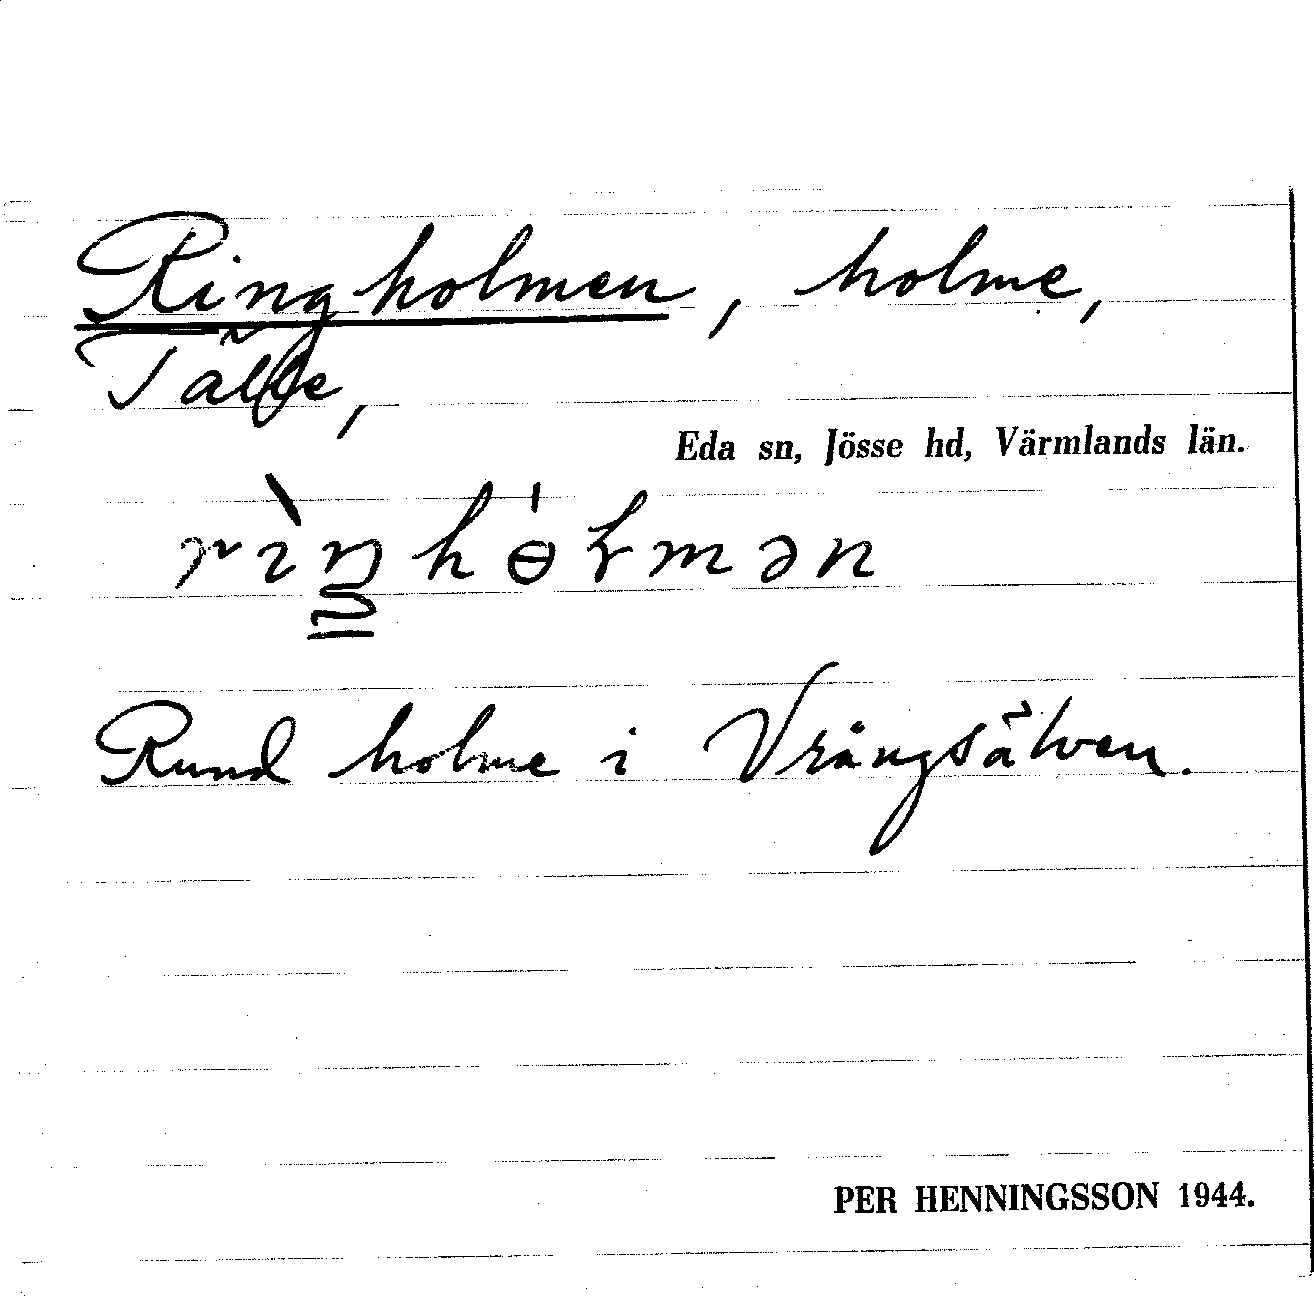 Ringholmen, holme,
Tälle,
Eda sn, Jösse hd, Värmlands län.
Rund holme i Vrångsälven.
PER HENNINGSSON 1944.